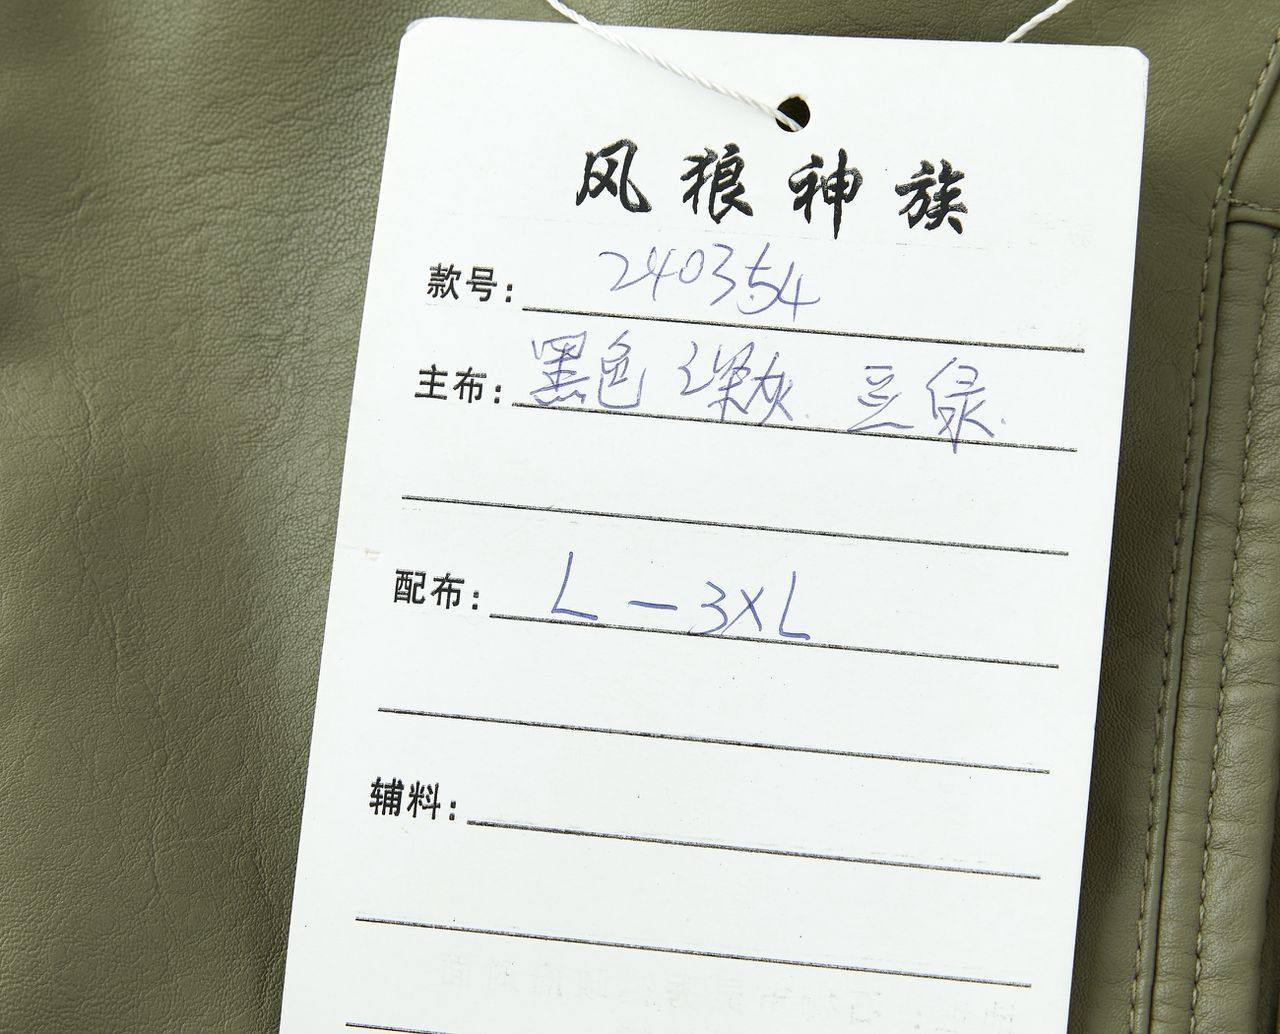 风狼神族
款号：240354
主布：黑色 深灰 豆绿
配布：L-3XL
辅料：